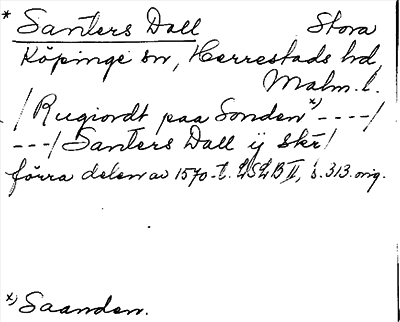 * Santers Dall Stora
Köpinge sn, Herrestads hd,
Malm. l.
/ Rugiordt paa Sonden x) ----/
---/ Santers Dall ij skr/
förra delen av 1570-t. LSLB II, s. 313. orig.
x) Saanden.